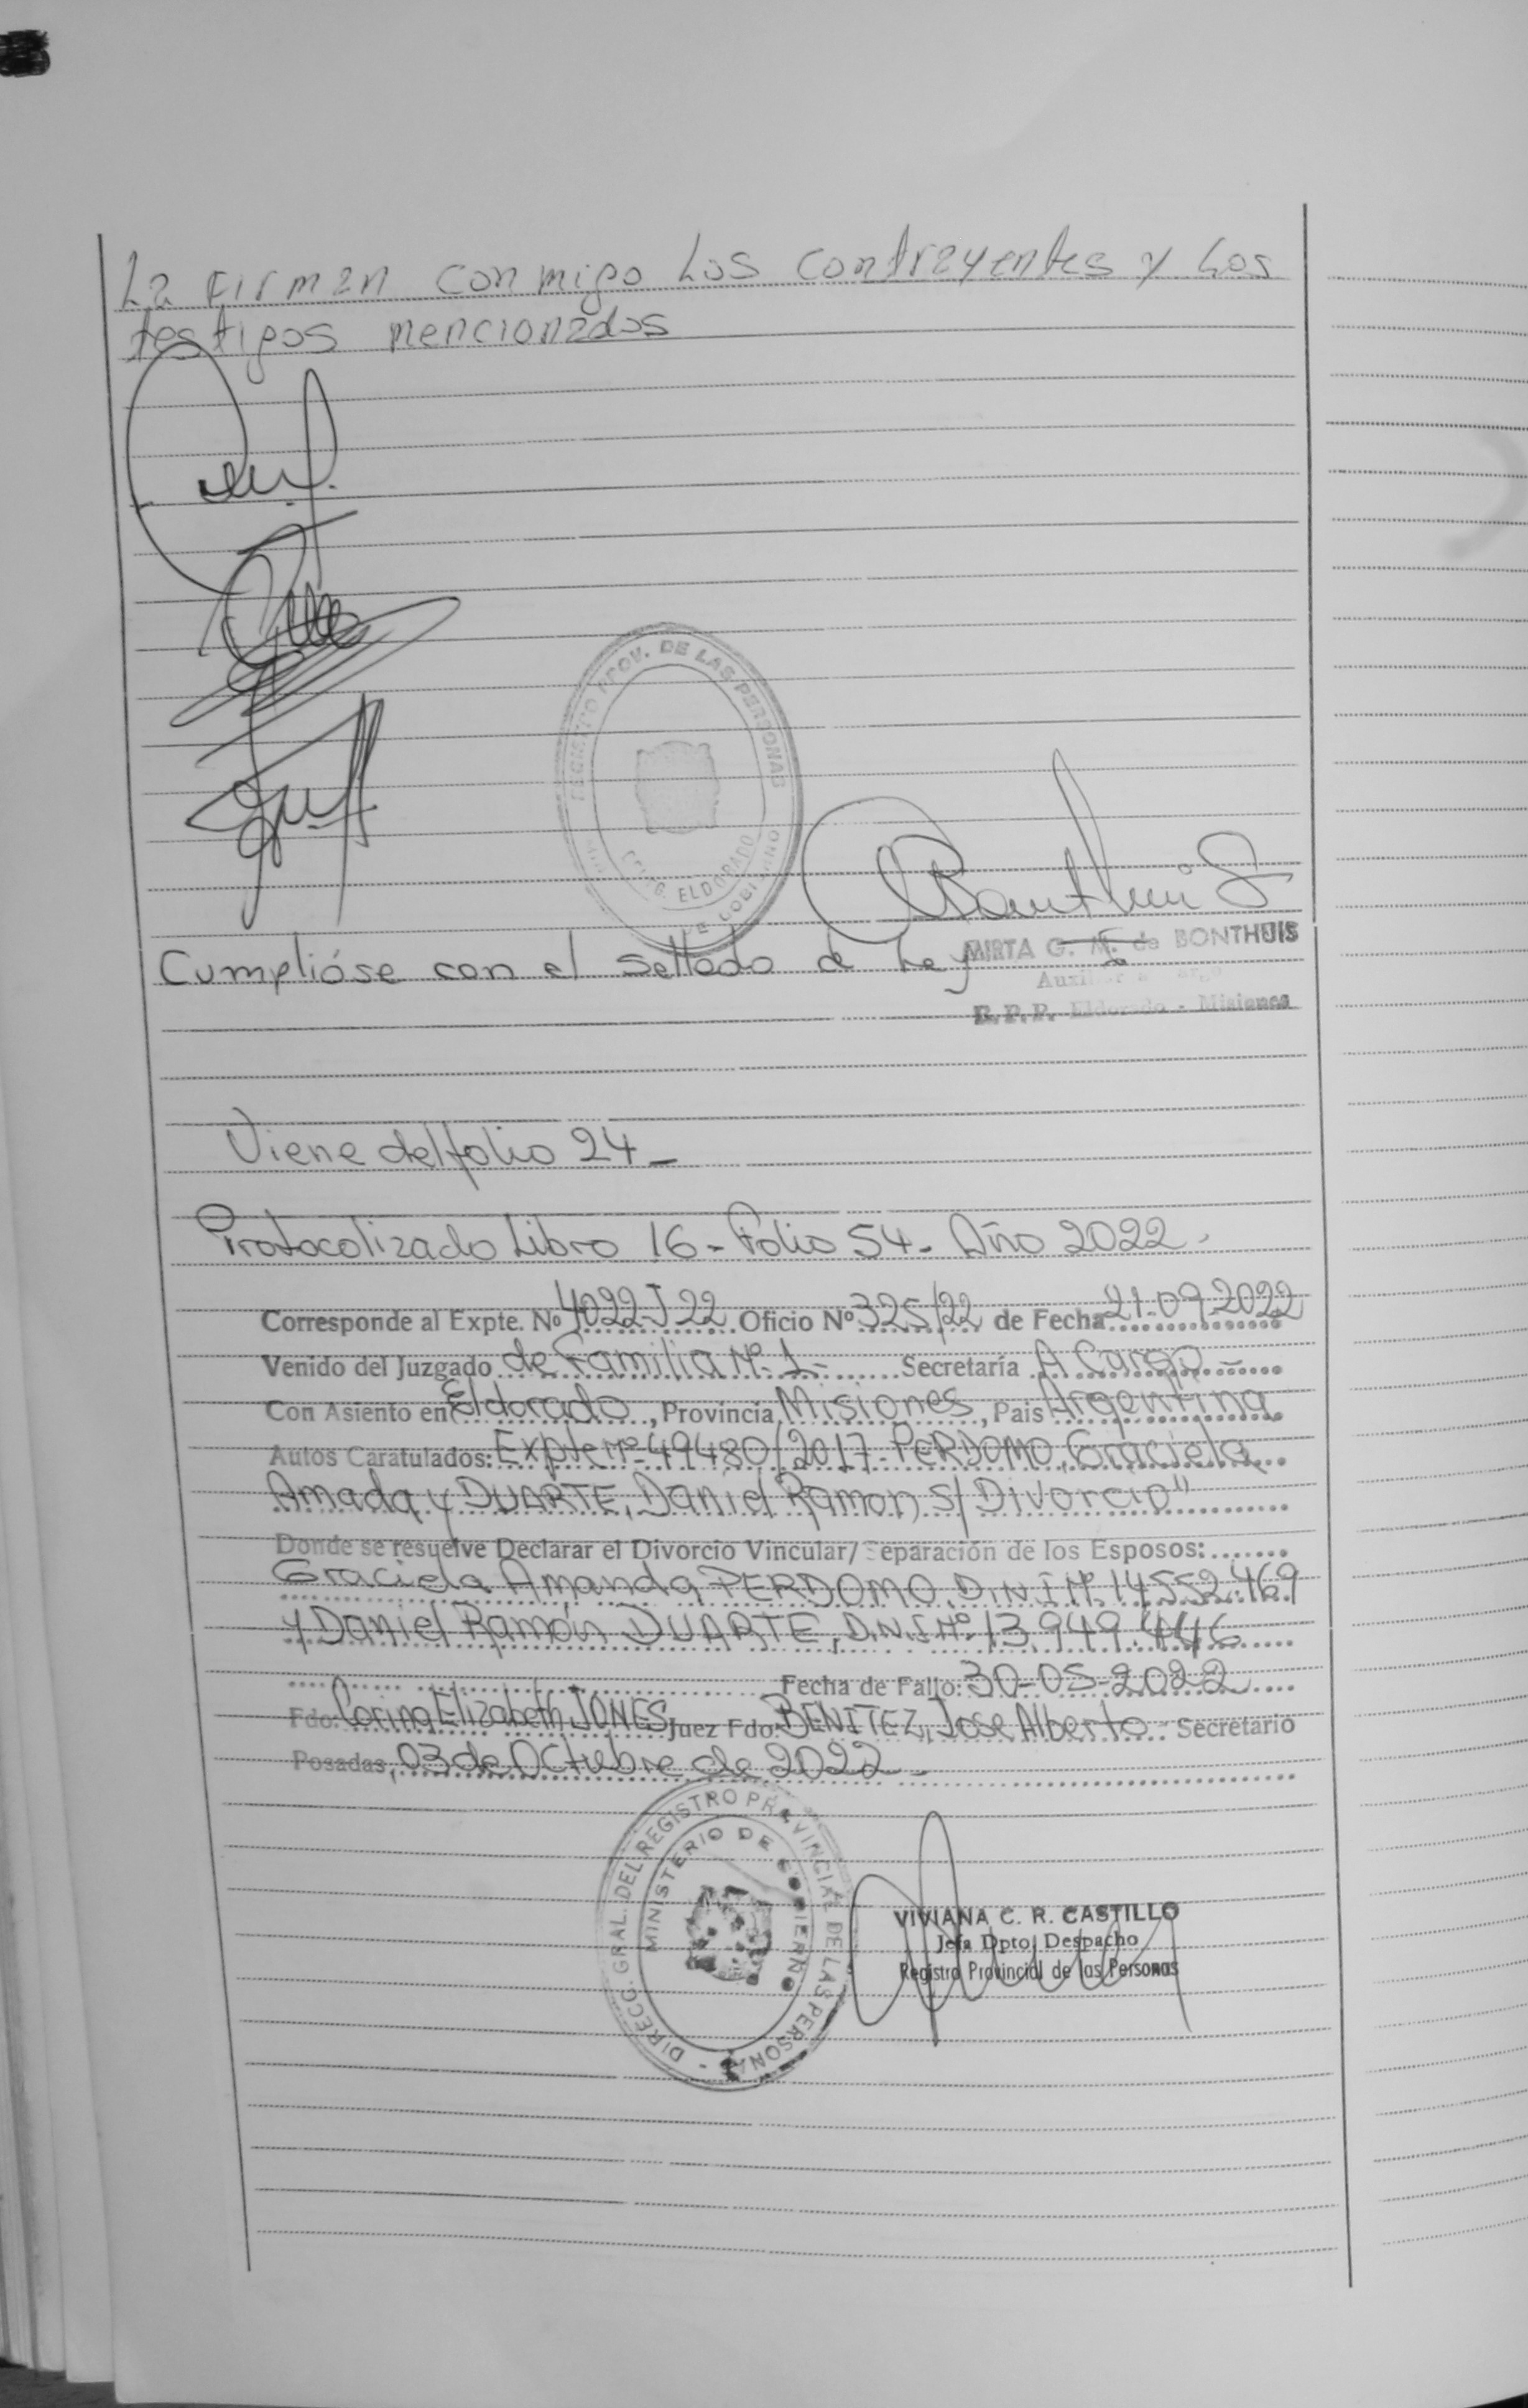 La firman conmigo los contrayentes y los
testigos mencionados
REGISTRO PROV. DE LAS PERSONAS
ELDORADO
Bonthuis
MIRTA G. M. de BONTHUIS
Cumplióse con el sellado de Ley
R.P.P. Eldorado - Misiones
Viene del folio 24-
Protocolizado Libro 16- Folio 54- Año 2022-
Corresponde al Expte. Nº 4022-J-22 Oficio Nº 325/22 de Fecha 21-09-2022
Venido del Juzgado de Familia Nº 1- Secretaría A Cargo-
Con Asiento en Eldorado, Provincia Misiones, Pais Argentina
Autos Caratulados: Expte Nº 49480/2017- PERDOMO, Graciela
Amada y DUARTE, Daniel Ramon s/ Divorcio"
Donde se resuelve Declarar el Divorcio Vincular/ Separación de los Esposos:
Graciela Amanda PERDOMO, D.N.I Nº 14552.469
y Daniel Ramón DUARTE, D.N.I Nº 13.949.446
Fecha de Fallo: 30-05-2022
Fdo: Corina Elizabeth JONES Juez Fdo: BENITEZ, Jose Alberto - Secretario
Posadas, 03 de Octubre de 2022-
DIRECC. GRAL. DEL REGISTRO PROVINCIAL DE LAS PERSONAS -
MINISTERIO DE GOBIERNO
VIVIANA C. R. CASTILLO
Jefa Dpto. Despacho
Registro Provincial de las Personas